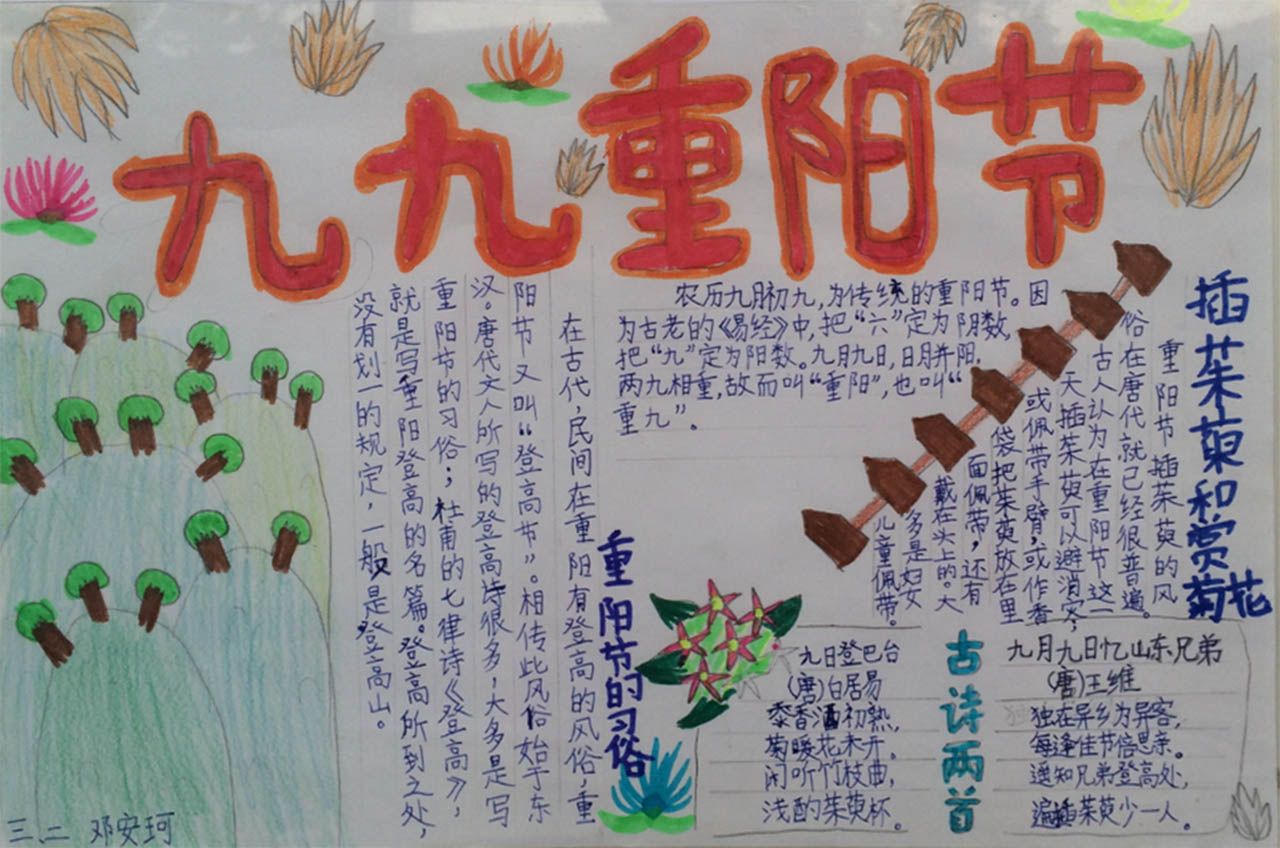 九九重阳节
农历九月初九,为传统的重阳节。因
为古老的《易经》中,把“六”定为阴数,
把“九”定为阳数。九月九日,日月并阳,
两九相重,故而叫“重阳”,也叫“
重九”。
插茱萸和赏菊花
重阳节插茱萸的风
俗在唐代就已经很普遍。
古人认为在重阳节这一
天插茱萸可以避消灾;
或佩带手臂,或作香
袋把茱萸放在里
面佩带,还有
戴在头上的。大
多是妇女
儿童佩带。
重阳节的习俗
在古代,民间在重阳有登高的风俗,重
阳节又叫“登高节”。相传此风俗始于东
汉。唐代文人所写的登高诗很多,大多是写
重阳节的习俗;杜甫的七律诗《登高》,
就是写重阳登高的名篇。登高所到之处,
没有划一的规定,一般是登高山。
古诗两首
九月九日忆山东兄弟
(唐)王维
独在异乡为异客,
每逢佳节倍思亲。
遥知兄弟登高处,
遍插茱萸少一人。
九日登巴台
(唐)白居易
黍香酒初熟,
菊暖花未开。
闲听竹枝曲,
浅酌茱萸杯。
三.二 邓安珂